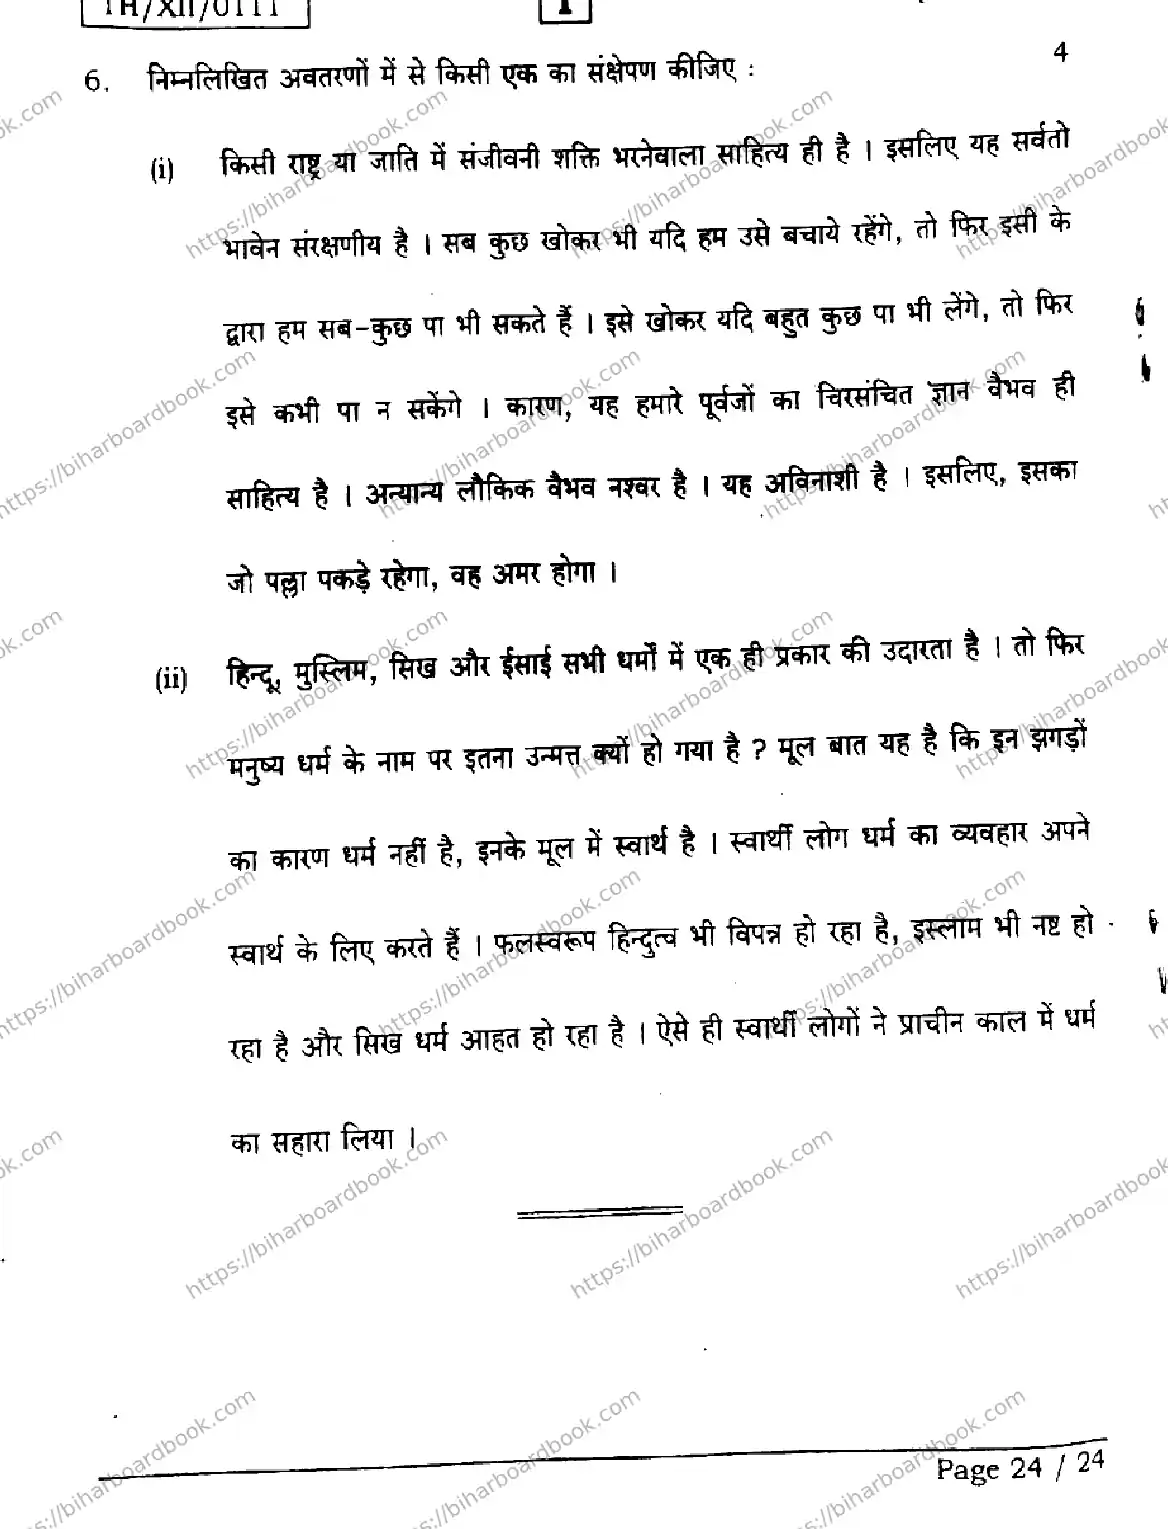 TH/XII/0111
1
6. निम्नलिखित अवतरणों में से किसी एक का संक्षेपण कीजिए : 4
(i) किसी राष्ट्र या जाति में संजीवनी शक्ति भरनेवाला साहित्य ही है । इसलिए यह सर्वतो
भावेन संरक्षणीय है । सब कुछ खोकर भी यदि हम उसे बचाये रहेंगे, तो फिर इसी के
द्वारा हम सब-कुछ पा भी सकते हैं । इसे खोकर यदि बहुत कुछ पा भी लेंगे, तो फिर
इसे कभी पा न सकेंगे । कारण, यह हमारे पूर्वजों का चिरसंचित ज्ञान वैभव ही
साहित्य है । अन्यान्य लौकिक वैभव नश्वर है । यह अविनाशी है । इसलिए, इसका
जो पल्ला पकड़े रहेगा, वह अमर होगा ।
(ii) हिन्दू, मुस्लिम, सिख और ईसाई सभी धर्मों में एक ही प्रकार की उदारता है । तो फिर
मनुष्य धर्म के नाम पर इतना उन्मत्त क्यों हो गया है ? मूल बात यह है कि इन झगड़ों
का कारण धर्म नहीं है, इनके मूल में स्वार्थ है । स्वार्थी लोग धर्म का व्यवहार अपने
स्वार्थ के लिए करते हैं । फलस्वरूप हिन्दुत्व भी विपन्न हो रहा है, इस्लाम भी नष्ट हो
रहा है और सिख धर्म आहत हो रहा है । ऐसे ही स्वार्थी लोगों ने प्राचीन काल में धर्म
का सहारा लिया ।
Page 24 / 24
https://biharboardbook.com